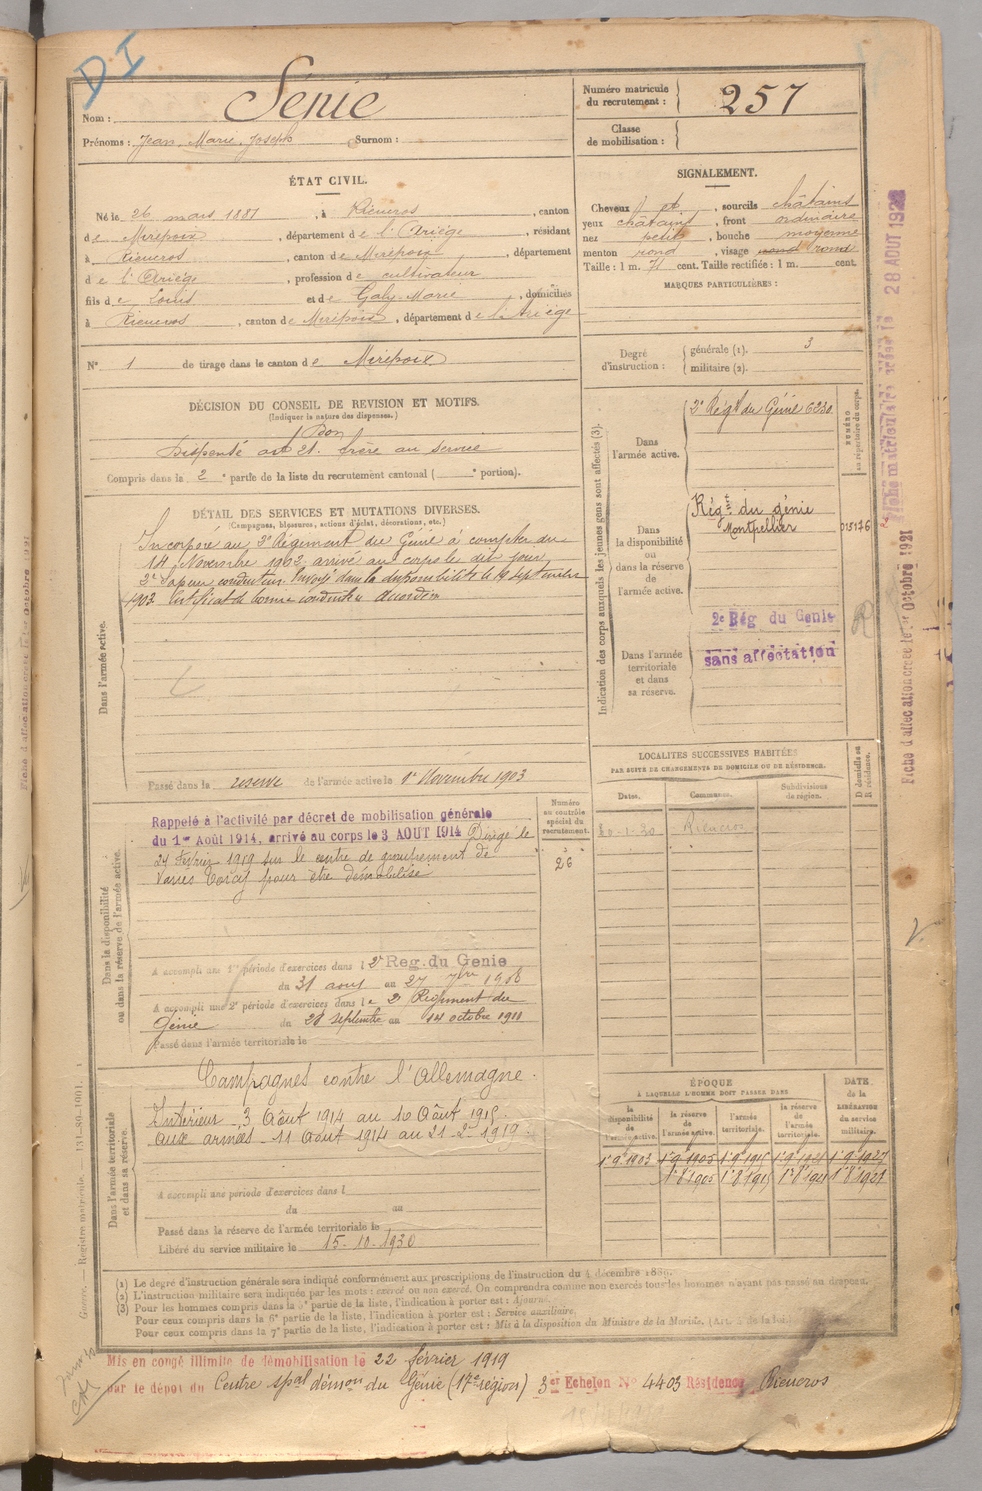 DI
Nom : Sénié
Prénoms : Jean, Marie, Joseph Surnom :
Numéro matricule du recrutement : 257
Classe de mobilisation :
ÉTAT CIVIL.
Né le 26 mars 1881, à Rieucros, canton
de Mirepoix, département de l'Ariège, résidant
à Rieucros, canton de Mirepoix, département
de l'Ariège, profession de cultivateur
fils de Louis et de Galy Marie, domiciliés
à Rieucros, canton de Mirepoix, département de l'Ariège
N° 1 de tirage dans le canton de Mirepoix
SIGNALEMENT.
Cheveux, sourcils châtains
yeux châtains, front ordinaire
nez petit, bouche moyenne
menton rond, visage rond rond
Taille : 1 m. 71 cent. Taille rectifiée : 1 m. cent.
MARQUES PARTICULIÈRES :
Degré d'instruction : générale (1). 3
militaire (2).
DÉCISION DU CONSEIL DE REVISION ET MOTIFS.
(Indiquer la nature des dispenses.)
Bon
Dispensé art 21. frère au service
Compris dans la 2e partie de la liste du recrutement cantonal ( e portion).
DÉTAIL DES SERVICES ET MUTATIONS DIVERSES.
(Campagnes, blessures, actions d'éclat, décorations, etc.)
Dans l'armée active.
Incorporé au 2e Régiment du Génie à compter du
14 Novembre 1902, arrivé au corps le dit jour,
2e Sapeur conducteur. Envoyé dans la disponibilité le 19 septembre
1903 Certificat de bonne conduite Accordé
Passé dans la reserve de l'armée active le 1er Novembre 1903
Indication des corps auxquels les jeunes gens sont affectés (3).
Dans l'armée active.
2e Régt du Génie 6230
NUMÉRO au répertoire du corps.
Dans la disponibilité ou dans la réserve de l'armée active.
Régt du génie
Montpellier
015176
Dans l'armée territoriale et dans sa réserve.
2e Rég du Genie
sans affectation
Fiche matriculaire créée le 28 AOUT 192
Fiche d'affectation créée le 1er Octobre 1921
LOCALITÉS SUCCESSIVES HABITÉES
PAR SUITE DE CHANGEMENTS DE DOMICILE OU DE RÉSIDENCE.
Dates. Communes. Subdivisions de région. D domicile ou R résidence.
20-1-30 Rieucros
Dans la disponibilité ou dans la réserve de l'armée active.
Numéro au contrôle spécial du recrutement.
26
Rappelé à l'activité par décret de mobilisation générale
du 1er Août 1914, arrivé au corps le 3 AOUT 1914 Dirigé le
27 Février 1919 sur le centre de groupement de
pour être démobilisé
A accompli une 1re période d'exercices dans l 2e Reg. du Genie
du 31 août au 27 7bre 1906
A accompli une 2e période d'exercices dans le 2e Régiment du
Génie du 28 septembre au 14 octobre 1910
Passé dans l'armée territoriale le
Dans l'armée territoriale et dans sa réserve.
Campagnes contre l'Allemagne.
Intérieur - 3 Août 1914 au 10 Août 1915.
aux armées - 11 Août 1914 au 21-2-1919.
A accompli une période d'exercices dans l
du au
Passé dans la réserve de l'armée territoriale le
Libéré du service militaire le 15-10-1930
ÉPOQUE
À LAQUELLE L'HOMME DOIT PASSER DANS
la disponibilité de l'armée active. la réserve de l'armée active. l'armée territoriale. la réserve de l'armée territoriale. DATE de la LIBÉRATION du service militaire.
1er 9e 1903 1er 9e 1905 1er 9e 1915 1er 9e 1921 1er 9e 1927
1er 8e 1905 1er 8e 1915 1er 8e 1921 1er 8e 1927
(1) Le degré d'instruction générale sera indiqué conformément aux proscriptions de l'instruction du 4 décembre 1889.
(2) L'instruction militaire sera indiquée par les mots : exercé ou non exercé. On comprendra comme non exercés tous les hommes n'ayant pas passé au drapeau.
(3) Pour les hommes compris dans la 5e partie de la liste, l'indication à porter est : Ajourné.
Pour ceux compris dans la 6e partie de la liste, l'indication à porter est : Service auxiliaire.
Pour ceux compris dans la 7e partie de la liste, l'indication à porter est : Mis à la disposition du Ministre de la Marine.
Guerre. — Registre matricule. — 131-80-1901.
Mis en congé illimité de démobilisation le 22 février 1919
par le dépôt du Centre spal démon du Génie (17e région) 3er Echelon N° 4403 Résidence Rieucros